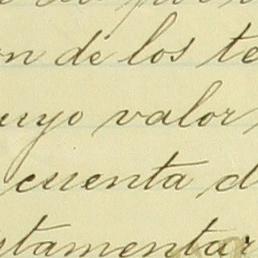 on de los te
uyo valor
cuenta d
stamentar